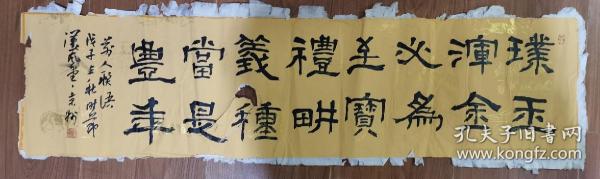 璞玉
渾金
必為
至寶
禮畊
義種
當是
豐年
人聯語
戊子 秋時節
漢風堂
孔夫子旧书网
www.kongfz.com